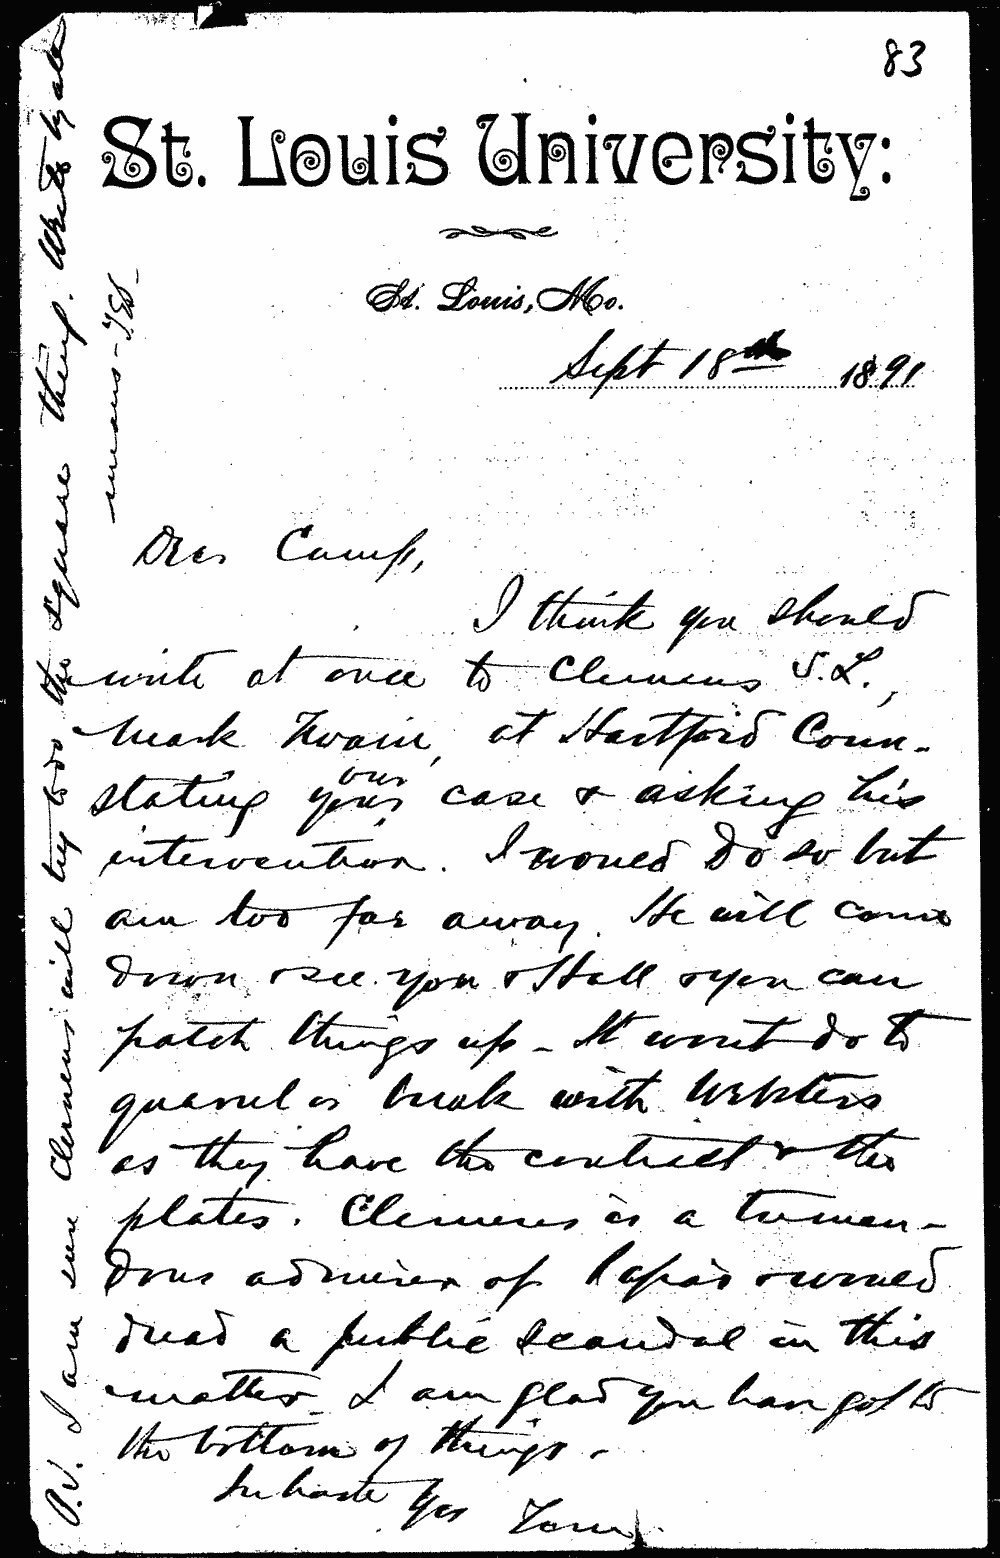 83
St. Louis University:
St. Louis, Mo.
Sept 18th 1891
Dear Camp,
I think you should
write at once to Clemens S.L.,
Mark Twain, at Hartford Conn-
our
stating your case & asking his
intervention. I would do so but
am too far away. He will come
down & see you & Hall & you can
patch things up - It wont do to
quarrel or break with Websters
as they have the contract & the
plates. Clemens is a tremen-
dous admirer of Papa's & would
dread a public scandal in this
matter. I am glad you have got to
the bottom of things.
In haste Yrs Tom
P.S. I am sure Clemens will try to do the square thing. Write by all
means - TES -